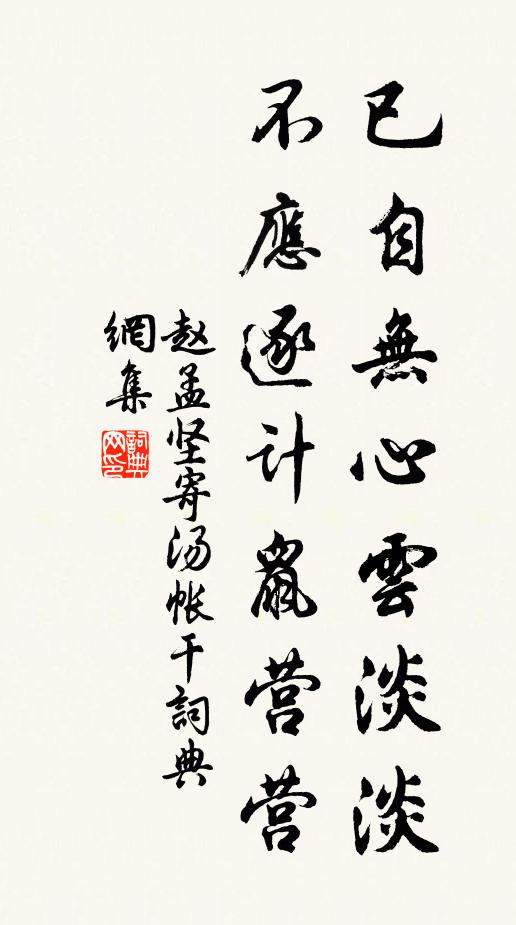 已自無心雲淡淡
不應逐计鼠营营
赵孟坚寄汤帐干詞典
網集
詞典
网印